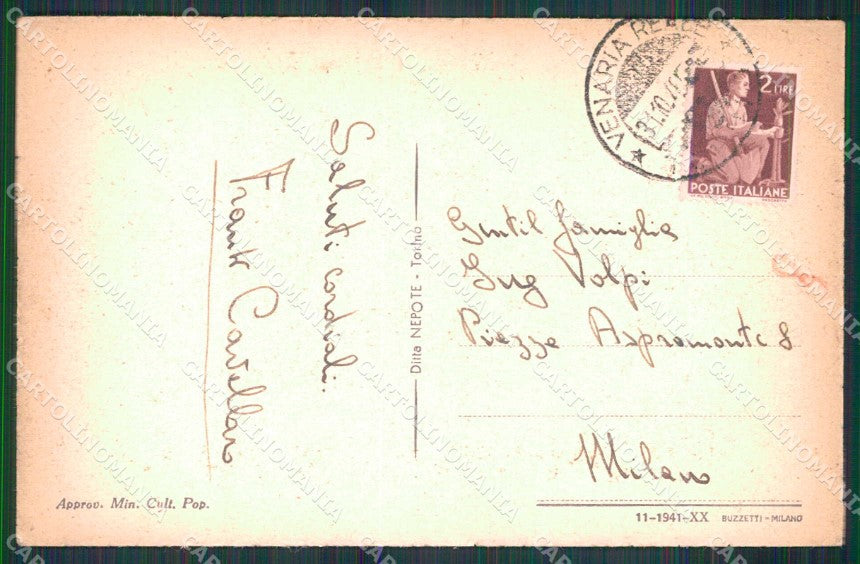 VENARIA REALE
31.10.
2 LIRE
POSTE ITALIANE
Saluti cordiali.
Frank Cavellaro
Gentil famiglia
Ing Volpi
Piazza Aspromonte 8
Milano
Ditta NEPOTE - Torino
Approv. Min. Cult. Pop.
11-1941-XX BUZZETTI-MILANO
CARTOLINOMANIA